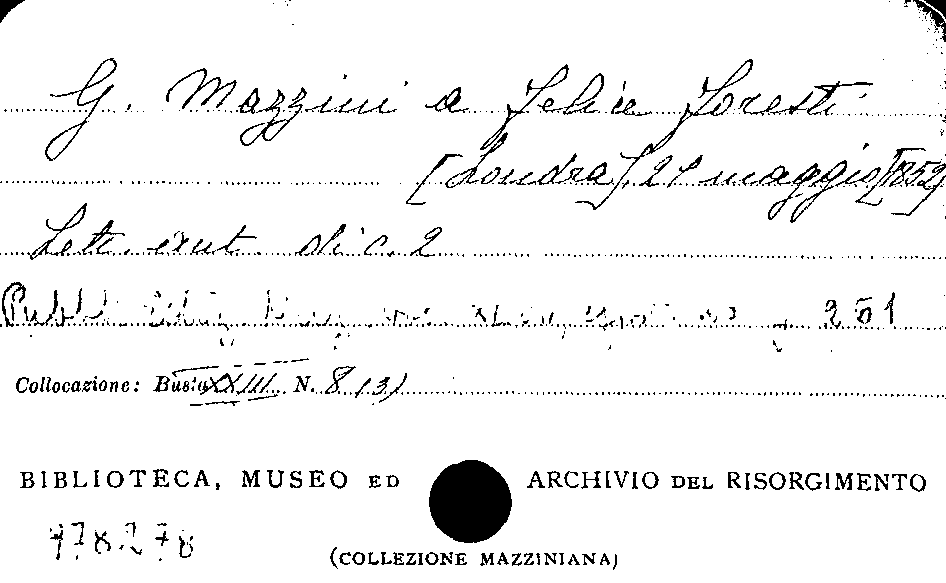 G. Mazzini a Felice Foresti
[Londra], 21 maggio [1852]
Lett. aut. di c. 2
Pubbl. 261
Collocazione: Busta XXIII N. 8 (3)
BIBLIOTECA, MUSEO ED ARCHIVIO DEL RISORGIMENTO
(COLLEZIONE MAZZINIANA)